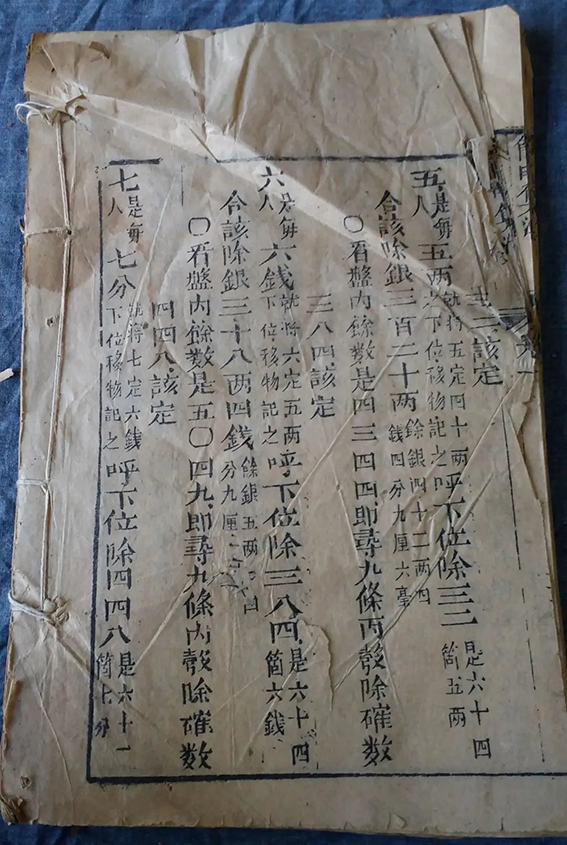 三二該定
五人是每五两就將五定四十两之下位移物記之呼下位除三二是六十四箇五两
合該除銀三百二十两餘銀四十二两四錢四分九厘六毫
〇看盤內餘数是四三四四即尋九條內彀除確数
三八四該定
六人是每六錢就將六定五两下位移物記之呼下位除三八四是六十四箇六錢
合該除銀三十八两四錢餘銀五两〇四分九厘
〇看盤內餘数是五〇四九即尋九條內彀除確数
四四八該定
七人是每七分就將七定六錢下位移物記之呼下位除四四八是六十一箇七分